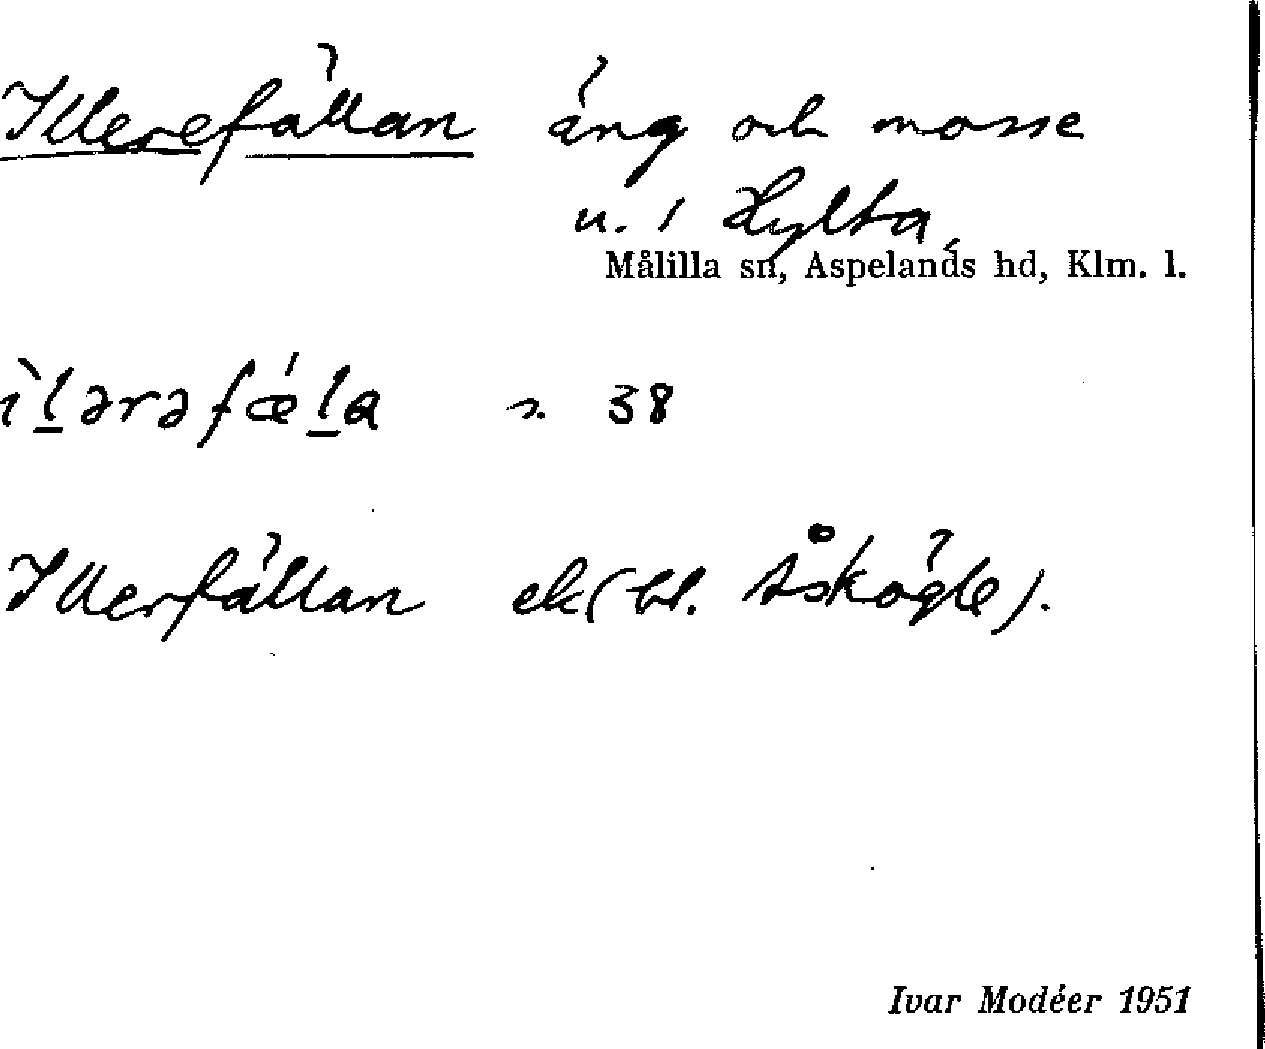 Illerefällan äng och mosse
u. 1 Hylta,
Målilla sn, Aspelands hd, Klm. l.
ìl̲ərəfǽl̲a s. 38
Illerfällan ek (bl. åskögle).
Ivar Modéer 1951